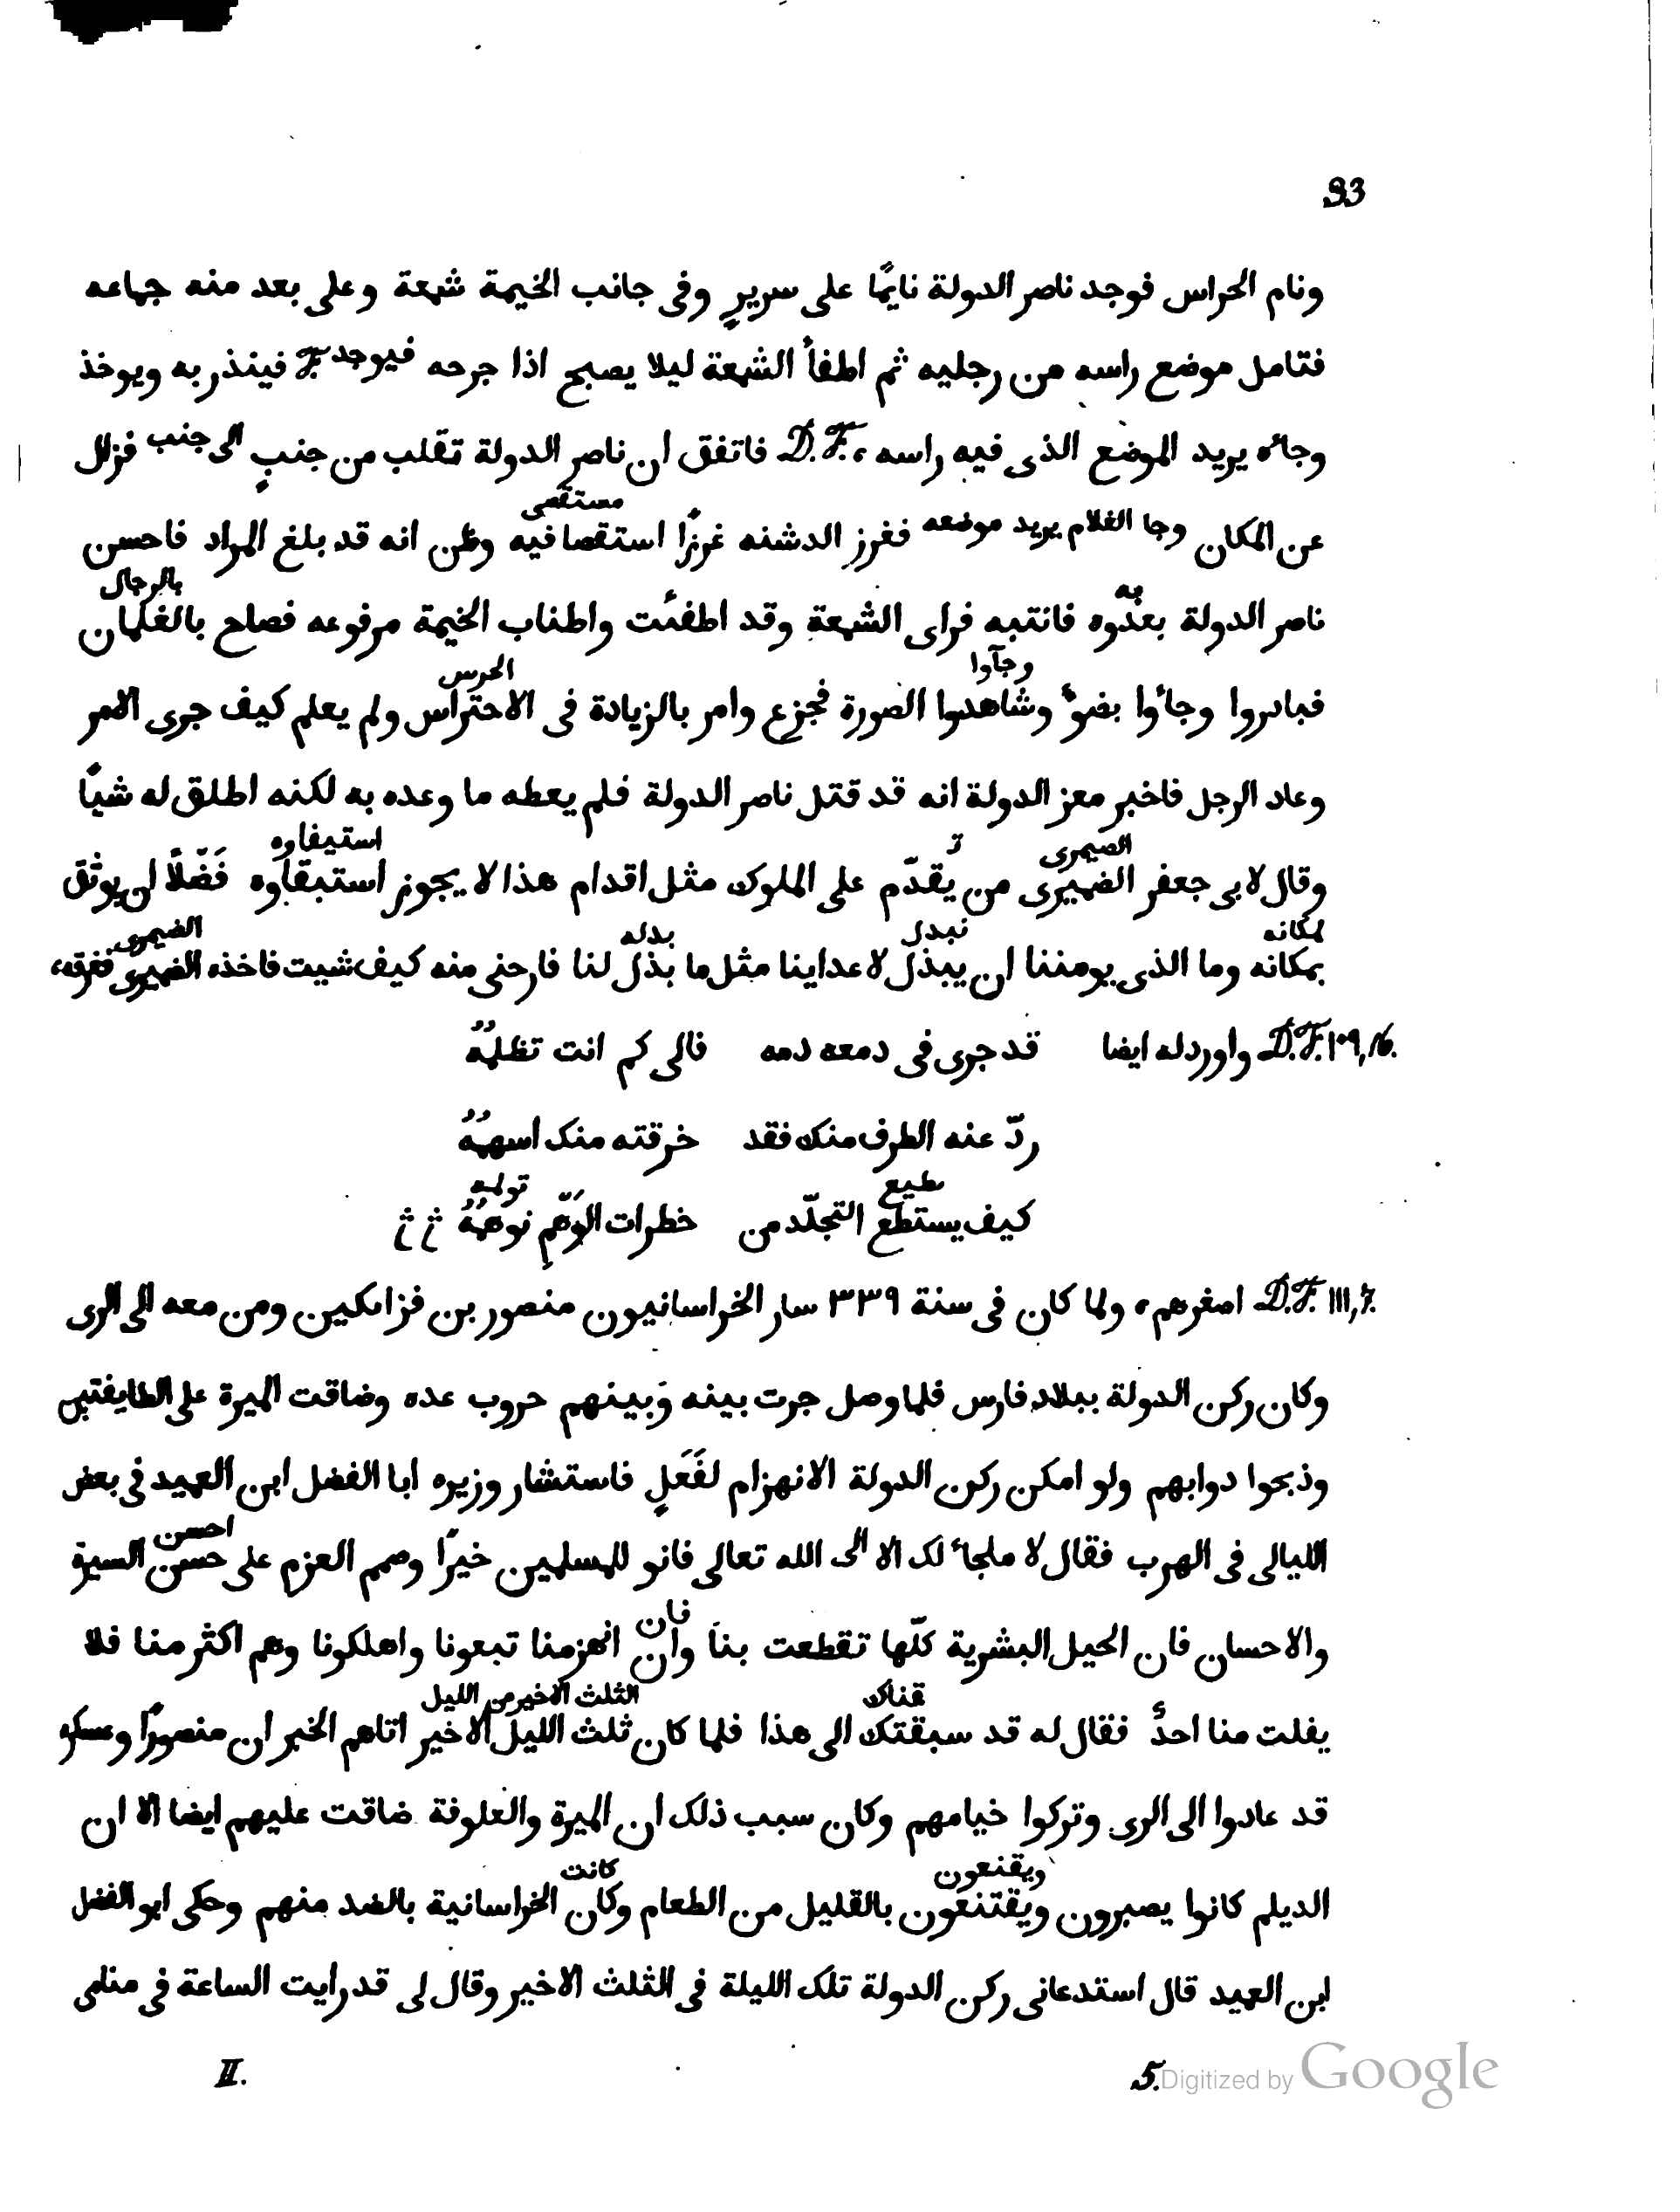 93
ونام الحراس فوجد ناصر الدولة نايمًا على سريرٍ وفى جانب الخيمة شمعة وعلى بعد منه جماعه
فتامل موضع راسه من رجليه ثم اطفأ الشمعة ليلا يصبح اذا جرحه فيوجد F. فينذر به ويوخذ
وجاه يريد الموضع الذى فيه راسه، D.F. فاتفق ان ناصر الدولة تقلب من جنبٍ الى جنب فزال
مستقصى
عن المكان وجا الغلام يريد موضعه فغرز الدشنه غرزًا استقصا فيه وظن انه قد بلغ المراد فاحسن
به بالرجال
ناصر الدولة بعدوه فانتبه فراى الشمعة وقد اطفئت واطناب الخيمة مرفوعه فصاح بالغلمان
وجآوا الحرس
فبادروا وجاوا بضوء وشاهدوا الصورة فجزع وامر بالزيادة فى الاحتراس ولم يعلم كيف جرى الامر
وعاد الرجل فاخبر معز الدولة انه قد قتل ناصر الدولة فلم يعطه ما وعده به لكنه اطلق له شيًا
الصيمرى تـ استيفاوه
وقال لابى جعفر الضميرى من يقدّم على الملوك مثل اقدام هذا لا يجوز استبقاوه فَضْلًا ان يوثق
لمكانه نبدل بدله الضيمرى
بمكانه وما الذى يومننا ان يبذل لاعداينا مثل ما بذل لنا فارحنى منه كيف شيت فاخذه الضميرى فغرقه،
D.F. ١٠٩,16. واورد له ايضا قد جرى فى دمعه دمه فالى كم انت تظلمُهُ
ردّ عنه الطرف منك فقد خرقته منك اسهمُهُ
طيع تولمه
كيف يستطع التجلّد من خطرات الوَهْمِ نوهمُهُ ث ث
D.F. 111,7. اصغرهم، ولما كان فى سنة ٣٣٩ سار الخراسانيون منصور بن قزاىكين ومن معه الى الرى
وكان ركن الدولة ببلاد فارس فلما وصل جرت بينه وَبينهم حروب عده وضاقت الميرة على الطايفتين
وذبحوا دوابهم ولو امكن ركن الدولة الانهزام لفَعَلٍ فاستشار وزيره ابا الفضل ابن العميد فى بعض
احسن
الليالى فى الهرب فقال لا ملجاء لك الا الى الله تعالى فانو للمسلمين خيرًا وصمم العزم على حسن السيرة
فان
والاحسان فان الحيل البشرية كلّها تقطعت بنا وان انهزمنا تبعونا واهلكونا وهم اكثر منا فلا
قناك الثلث الاخير من الليل
يفلت منا احدٌ فقال له قد سبقتك الى هذا فلما كان ثلث الليل الاخير اتاهم الخبر ان منصورًا وعسكره
قد عادوا الى الرى وتركوا خيامهم وكان سبب ذلك ان الميرة والعلوفة ضاقت عليهم ايضا الا ان
ويقنعون كانت
الديلم كانوا يصبرون ويقتنعون بالقليل من الطعام وكان الخراسانية بالضد منهم وحكى ابو الفضل
ابن العميد قال استدعانى ركن الدولة تلك الليلة فى الثلث الاخير وقال لى قد رايت الساعة فى منامى
II. 5.
Digitized by Google